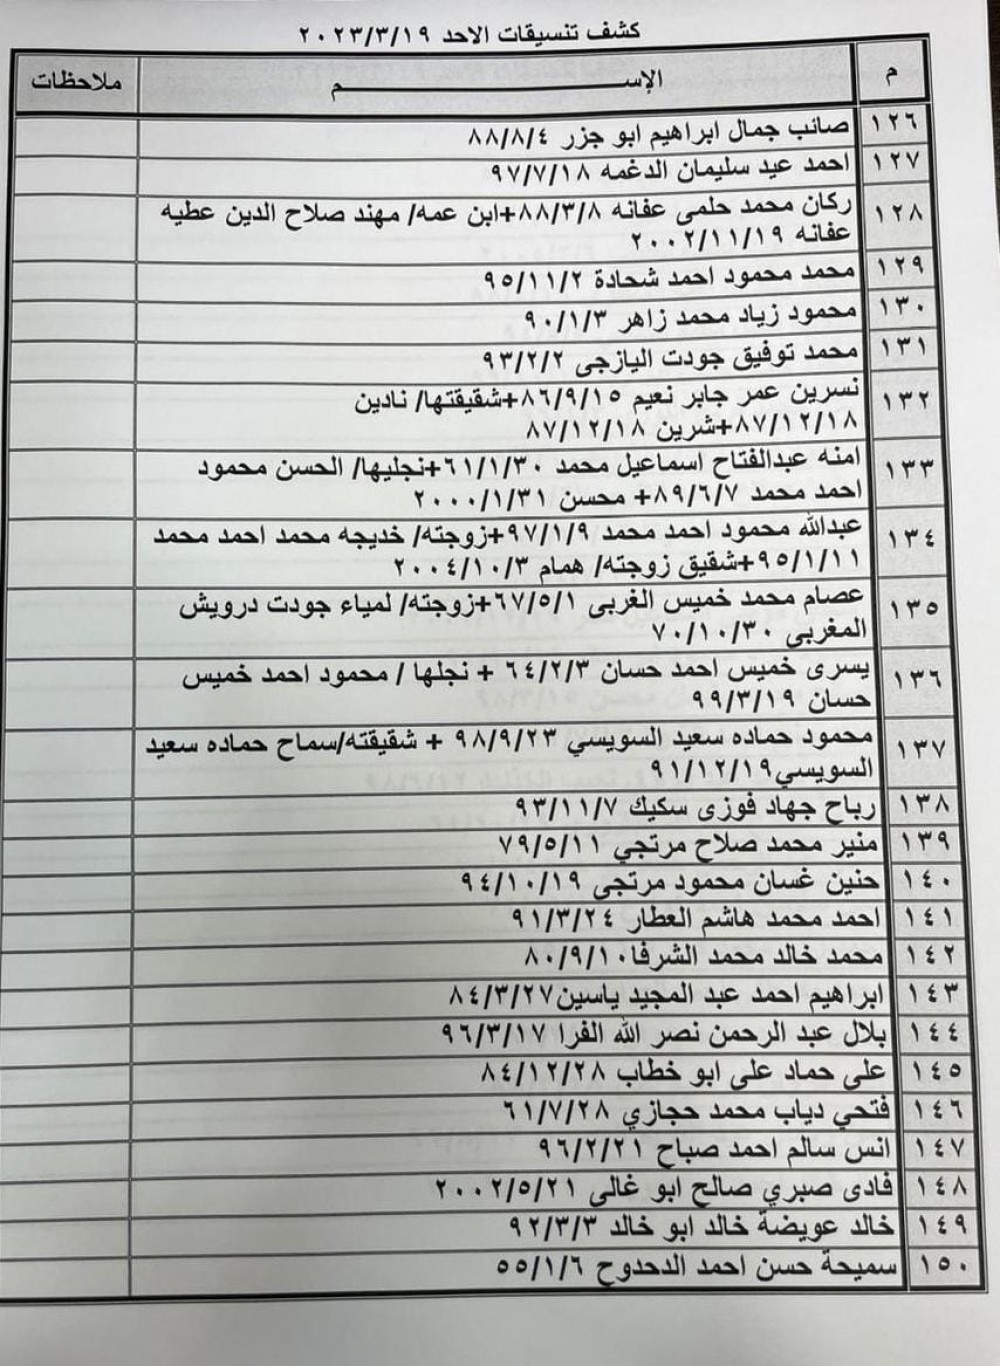 كشف تنسيقات الاحد ٢٠٢٣/٣/١٩
م الإســــــــم ملاحظات
١٢٦ صائب جمال ابراهيم ابو جزر ٨٨/٨/٤
١٢٧ احمد عيد سليمان الدغمه ٩٧/٧/١٨
١٢٨ ركان محمد حلمى عفانه ٨٨/٣/٨+ابن عمه/ مهند صلاح الدين عطيه
عفانه ٢٠٠٢/١١/١٩
١٢٩ محمد محمود احمد شحادة ٩٥/١١/٢
١٣٠ محمود زياد محمد زاهر ٩٠/١/٣
١٣١ محمد توفيق جودت اليازجى ٩٣/٢/٢
١٣٢ نسرين عمر جابر نعيم ٨٦/٩/١٥+شقيقتها/ نادين
٨٧/١٢/١٨+شرين ٨٧/١٢/١٨
١٣٣ امنه عبدالفتاح اسماعيل محمد ٦١/١/٣٠+نجليها/ الحسن محمود
احمد محمد ٨٩/٦/٧+ محسن ٢٠٠٠/١/٣١
١٣٤ عبدالله محمود احمد محمد ٩٧/١/٩+زوجته/ خديجه محمد احمد محمد
٩٥/١/١١+شقيق زوجته/ همام ٢٠٠٤/١٠/٣
١٣٥ عصام محمد خميس الغربى ٦٧/٥/١+زوجته/ لمياء جودت درويش
المغربى ٧٠/١٠/٣٠
١٣٦ يسرى خميس احمد حسان ٦٤/٢/٣ + نجلها / محمود احمد خميس
حسان ٩٩/٣/١٩
١٣٧ محمود حماده سعيد السويسي ٩٨/٩/٢٣ + شقيقته/سماح حماده سعيد
السويسي٩١/١٢/١٩
١٣٨ رباح جهاد فوزى سكيك ٩٣/١١/٧
١٣٩ منير محمد صلاح مرتجي ٧٩/٥/١١
١٤٠ حنين غسان محمود مرتجى ٩٤/١٠/١٩
١٤١ احمد محمد هاشم العطار ٩١/٣/٢٤
١٤٢ محمد خالد محمد الشرفا٨٠/٩/١٠
١٤٣ ابراهيم احمد عبد المجيد ياسين٨٤/٣/٢٧
١٤٤ بلال عبد الرحمن نصر الله الفرا ٩٦/٣/١٧
١٤٥ على حماد على ابو خطاب ٨٤/١٢/٢٨
١٤٦ فتحي دياب محمد حجازي ٦١/٧/٢٨
١٤٧ انس سالم احمد صباح ٩٦/٢/٢١
١٤٨ فادى صبري صالح ابو غالى ٢٠٠٢/٥/٢١
١٤٩ خالد عويضة خالد ابو خالد ٩٢/٣/٣
١٥٠ سميحة حسن احمد الدحدوح ٥٥/١/٦